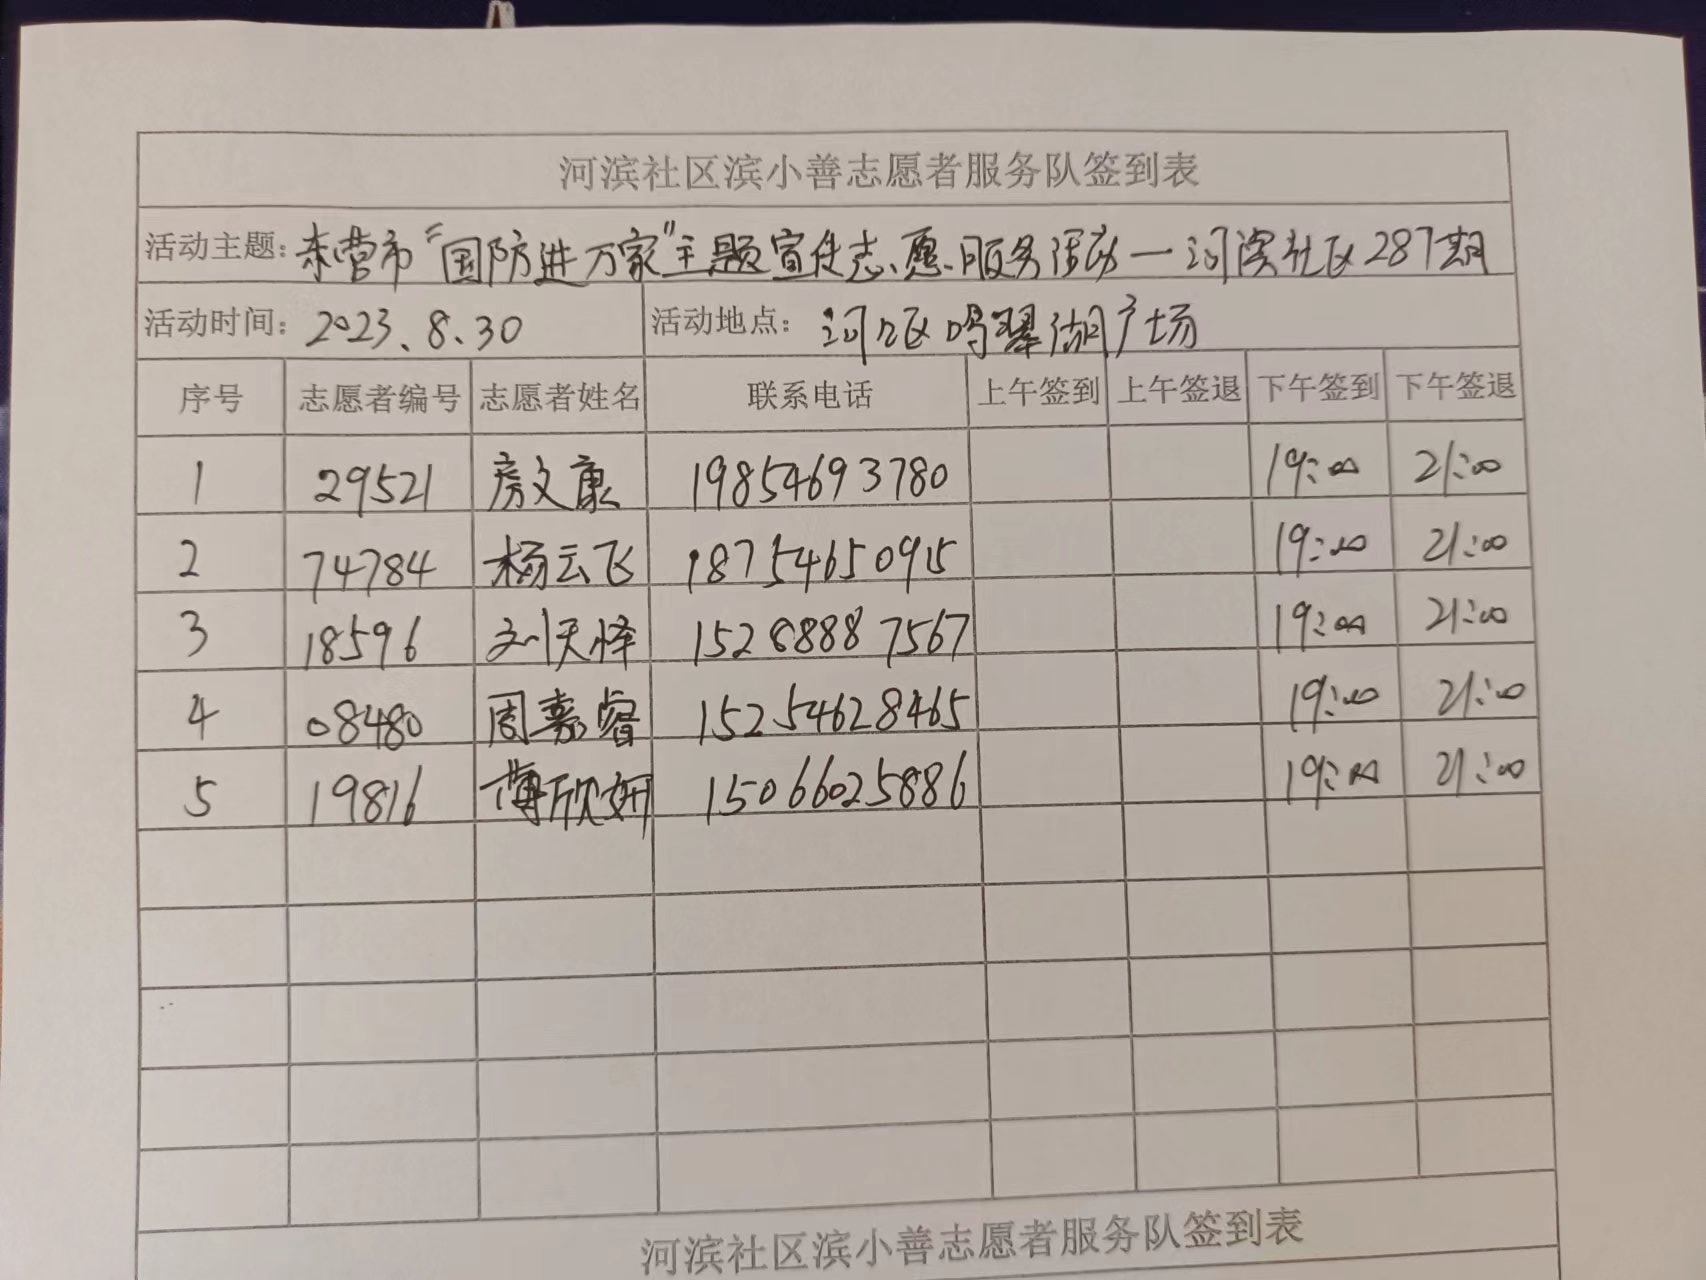 河滨社区滨小善志愿者服务队签到表
活动主题：东营市“国防进万家”主题宣传志愿服务活动—河滨社区287期
活动时间：2023.8.30 活动地点：河口区鸣翠湖广场
序号 志愿者编号 志愿者姓名 联系电话 上午签到 上午签退 下午签到 下午签退
1 29521 房文康 19854693780 19:00 21:00
2 74784 杨云飞 18754650915 19:00 21:00
3 18596 刘天怿 15288887567 19:00 21:00
4 08480 周嘉睿 15254628465 19:00 21:00
5 19816 薄欣妍 15066025886 19:00 21:00
河滨社区滨小善志愿者服务队签到表